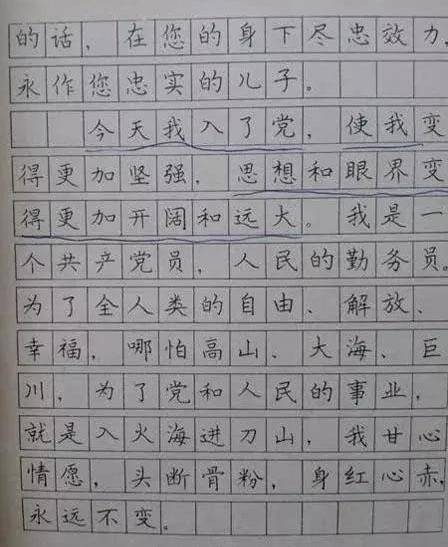 的话，在您的身下尽忠效力，
永作您忠实的儿子。
今天我入了党，使我变
得更加坚强，思想和眼界变
得更加开阔和远大。我是一
个共产党员，人民的勤务员。
为了全人类的自由、解放、
幸福，哪怕高山、大海、巨
川，为了党和人民的事业，
就是入火海进刀山，我甘心
情愿，头断骨粉，身红心赤，
永远不变。